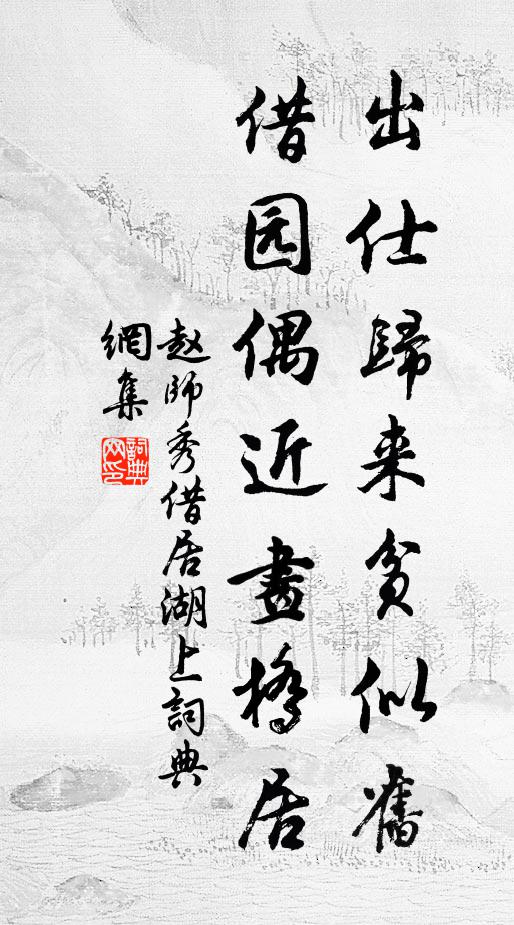 出仕歸来贫似舊
借园偶近畫橋居
赵師秀借居湖上詞典
網集
詞典網印